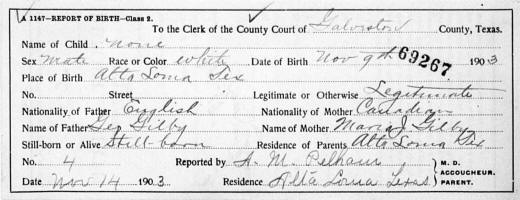 A 1147—REPORT OF BIRTH—Class 2.
To the Clerk of the County Court of Galveston County, Texas.
Name of Child none
Sex Male Race or Color white Date of Birth Nov 9th 1903
69267
Place of Birth Alta Loma Tex
No. Street Legitimate or Otherwise Legitimate
Nationality of Father English Nationality of Mother Canadian
Name of Father Geo Gilby Name of Mother Maria J Gilby
Still-born or Alive Still-born Residence of Parents Alta Loma Tex
No. 4 Reported by A. M. Pelham M. D.
ACCOUCHEUR.
Date Nov 14 1903 Residence Alta Loma Texas PARENT.